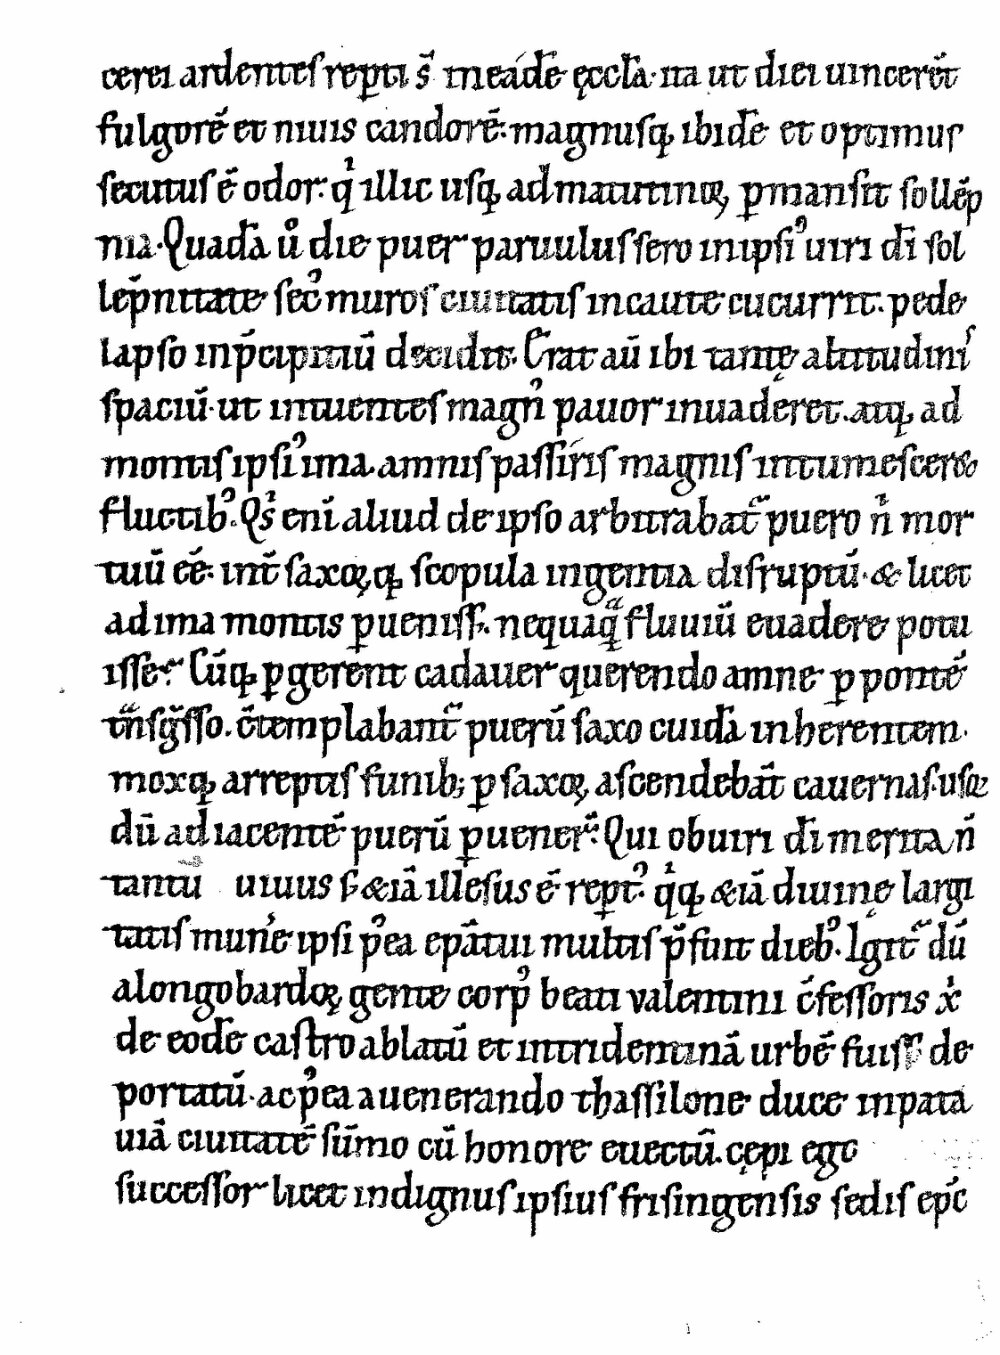 cerei ardentes rep̱ti s̄ in eadē ęccl̄a· ita ut diei uincerēt
fulgorē et niuis candorē: magnusq; ibidē et optimus
secutus ē odor: qͥ illic usq; ad matutinoꝝ ꝑmansit sollēp
nia· Quadā uͦ die puer paruulus sero in ipsiꝰ uiri dī sol
lēpnitate secꝰ muros ciuitatis incaute cucurrit. pede
lapso in p̄cipitiū decidit. Erat aū ibi tantę altitudinis
spaciū· ut intuentes magnꝰ pauor inuaderet. atq; ad
montis ipsiꝰ ima· amnis passiris magnis intumesceret
fluctibꝰ. Qͥs enī aliud de ipso arbitrabat᷑ puero n̄ mor
tuū eē· int̄ saxoꝝ q; scopula ingentia disruptū· & licet
ad ima montis ꝑueniss;. nequaqͣ fluuiū euadere potu
isse: Cūq; ꝑgerent cadauer querendo amne ꝑ pontē
tͣnsgͣsso. c̄templabant᷑ puerū saxo cuidā inherentem·
moxq; arreptis funib; ꝑ saxoꝝ ascendebāt cauernas· usq;
dū adiacentē puerū ꝑuener᷑: Qui ob uiri dī merita n̄
tantū uiuus s; &iā illesus ē rep̱tꝰ. qͥq; &iā diuinę largi
tatis munere ipsi pꝰea ep̄atui multis p̄fuit diebꝰ. Igit᷑ dū
a longobardoꝝ gente corpꝰ beati valentini c̄fessoris xͥ
de eodē castro ablatū et in tridentinā urbē fuiss; de
portatū· ac pꝰea a uenerando thassilone duce in pata
uiā ciuitatē sūmo cū honore euectū. cępi ego
successor licet indignus ipsius frisingensis sedis ep̄c